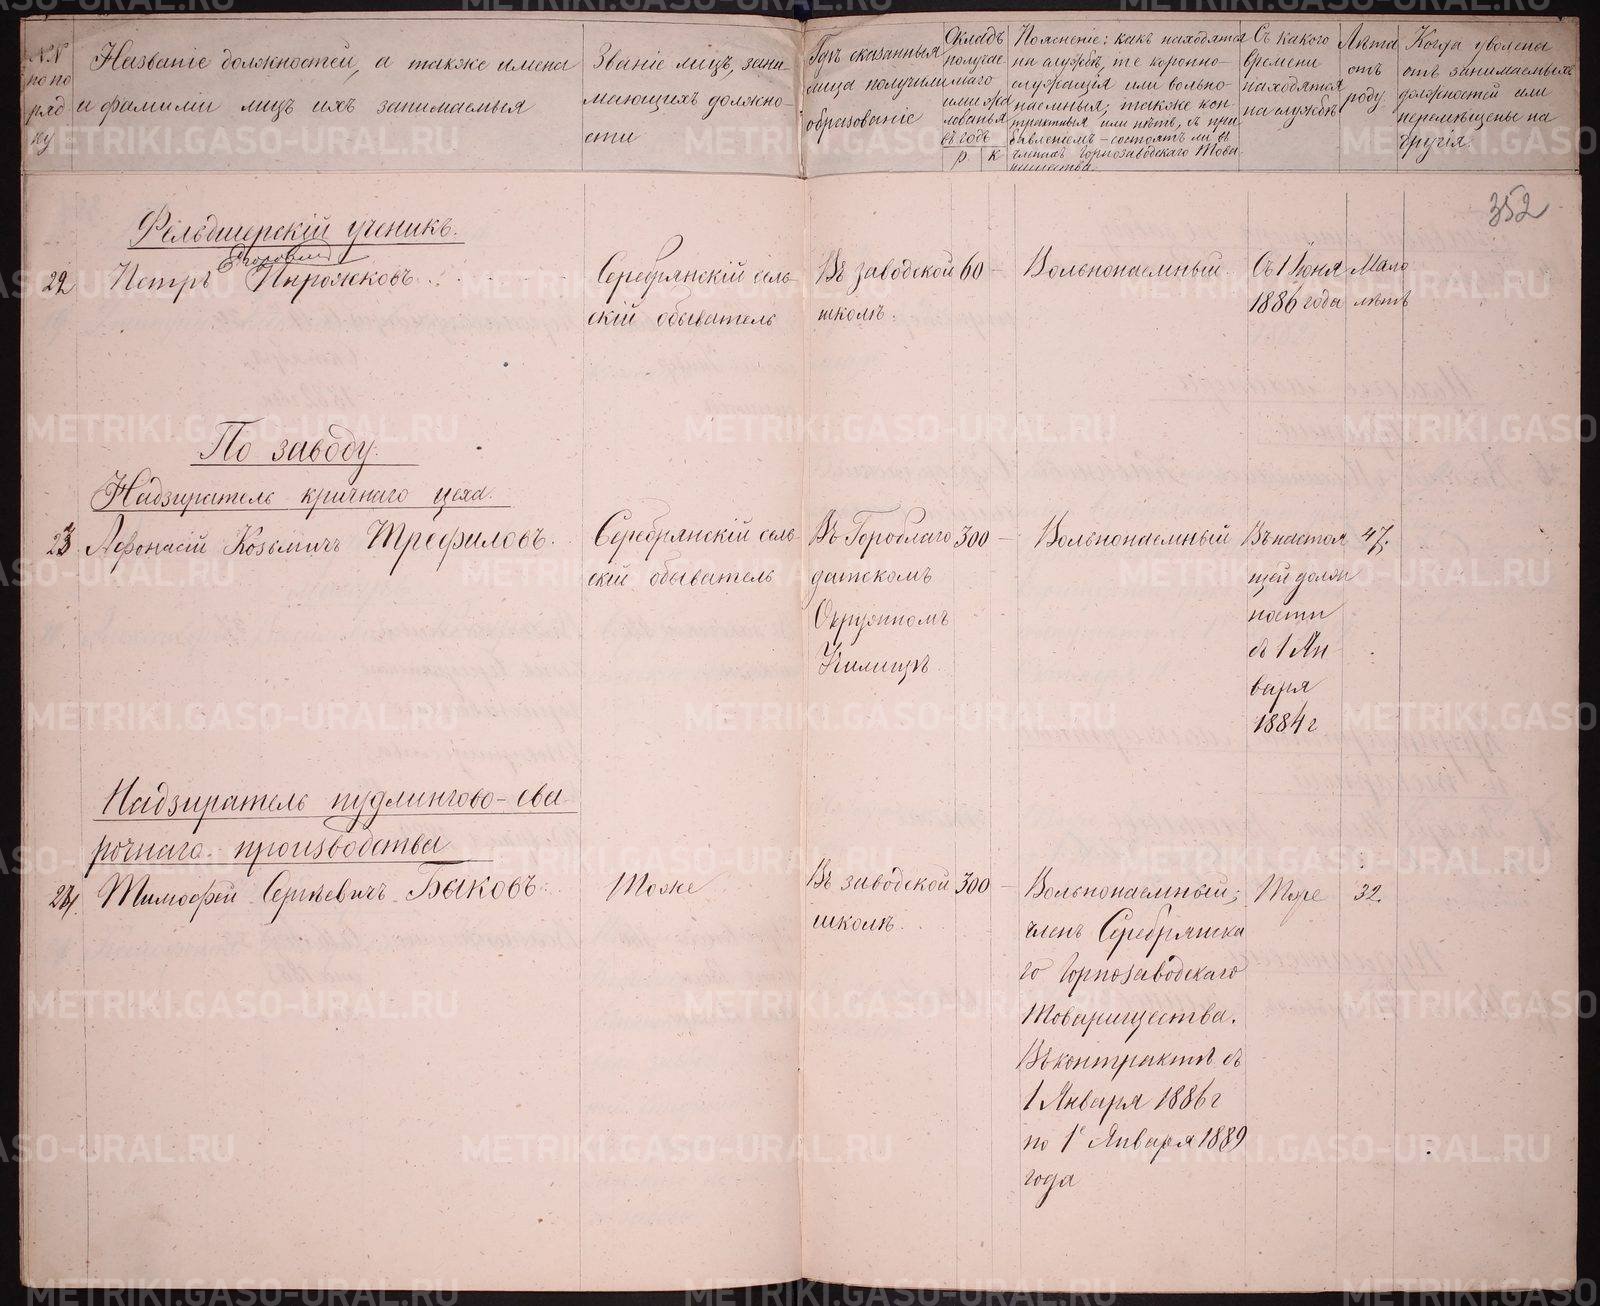 №№ по по ряд ку
Названіе должностей, а также имена
и фамиліи лицъ ихъ занимаемыя
Званіе лицъ, зани-
мающихъ должно-
сти
Гдѣ сказанныя
лица получили
образованіе
Окладъ
получае
маго
или жа
лованья
въ годъ
р к
Поясненіе: какъ находятся
на службѣ, те коронно-
служащія или вольно-
наемныя; также кон-
трактныя или нѣтъ, съ при
бавленіемъ – состоятъ ли въ
членахъ Горнозаводскаго Това-
рищества.
Съ какого
времени
находятся
на службѣ
Лѣта
отъ
роду.
Когда уволены
отъ занимаемыхъ
должностей или
перемѣщены на
другія.
352
Фельдшерскій ученикъ.
Егоровичъ
22 Петръ Пирожковъ.
Серебрянскій сель-
скій обыватель
Въ заводской
школѣ.
60 –
Вольнонаемный.
Съ 1 Іюня
1886 года
Мало
лѣтъ
По заводу.
Надзиратель кричнаго цеха.
23 Афонасій Козьмичъ Трефиловъ.
Серебрянскій сель
скій обыватель
Въ Гороблаго
датскомъ
Окружномъ
Училищѣ.
300 –
Вольнонаемный
Въ настоя
щей долж
ности
съ 1 Ян
варя
1884 г
47.
Надзиратель пудлингово-сва
рочнаго производства
24. Тимофей Сергѣевичъ Быковъ.
Тоже
Въ заводской
школѣ.
300 –
Вольнонаемный;
членъ Серебрянска
го Горнозаводскаго
Товарищества.
Въ контрактѣ съ
1 Января 1886 г
по 1е Января 1889
года
Тоже
32.
METRIKI.GASO-URAL.RU